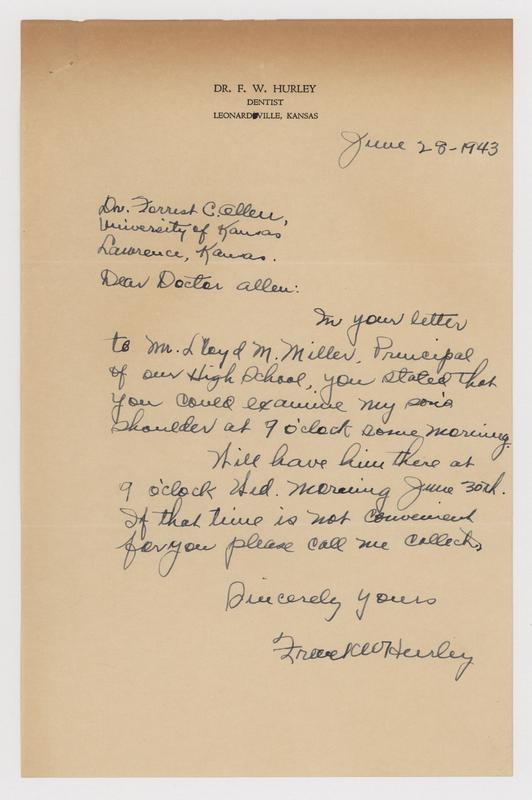 DR. F. W. HURLEY
DENTIST
LEONARDVILLE, KANSAS
June 28-1943
Dr. Forrest C. Allen,
University of Kansas
Lawrence, Kansas.
Dear Doctor Allen:
In your letter
to Mr. Lloyd M. Miller, Principal
of our High School, you stated that
you could examine my son's
shoulder at 9 o'clock some morning.
Will have him there at
9 o'clock Wed. morning June 30th.
If that time is not convenient
for you please call me collect.
Sincerely yours
Frank W Hurley